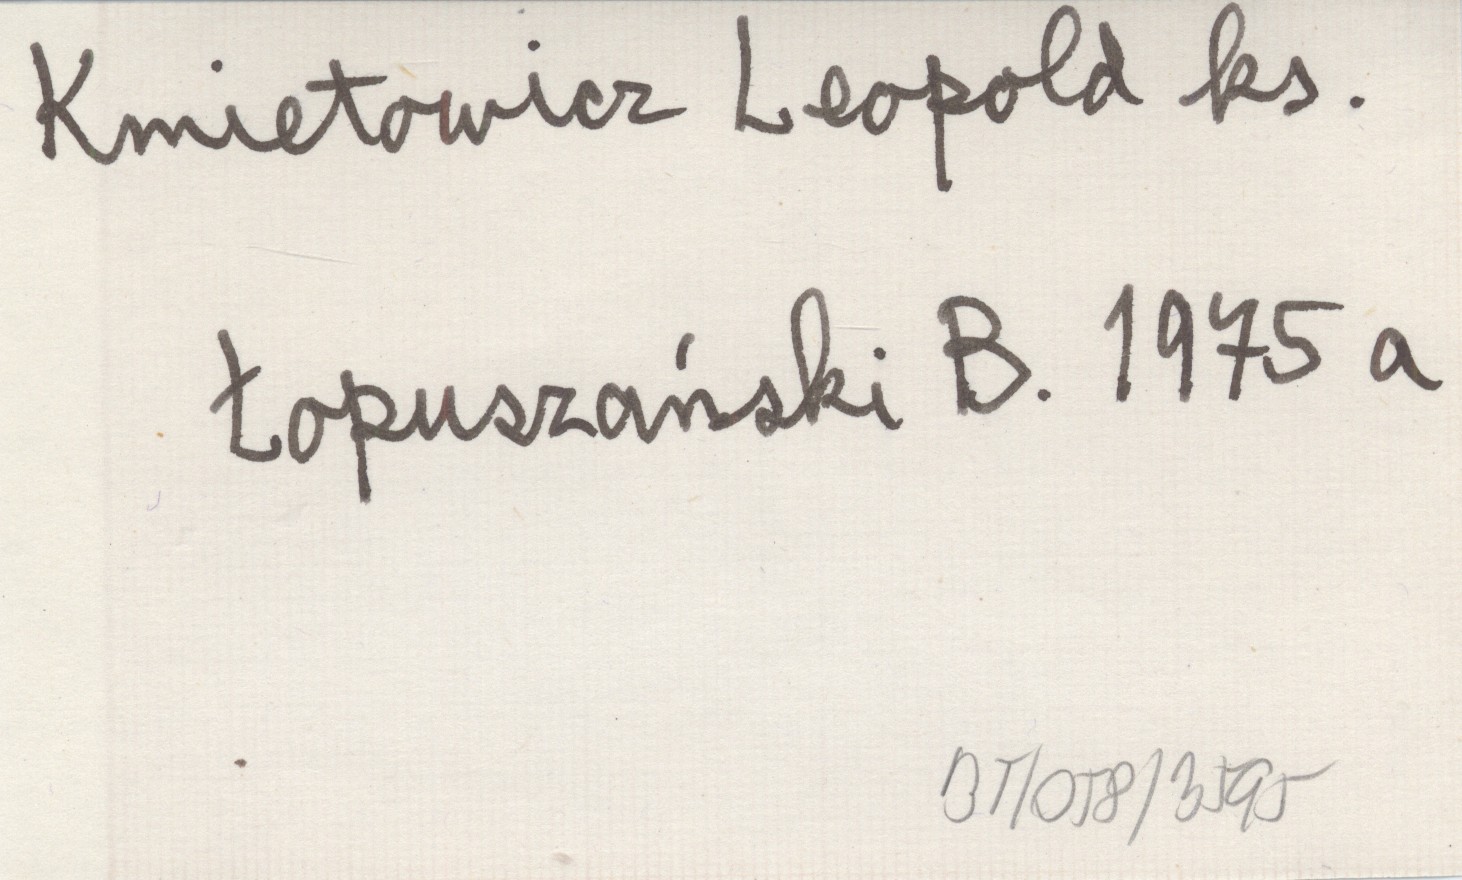 Kmietowicz Leopold ks.
Łopuszański B. 1975 a
BT/058/3595